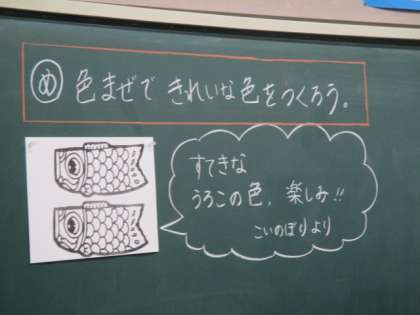 め 色まぜで きれいな色をつくろう。
すてきな
うろこの色、楽しみ!!
こいのぼりより